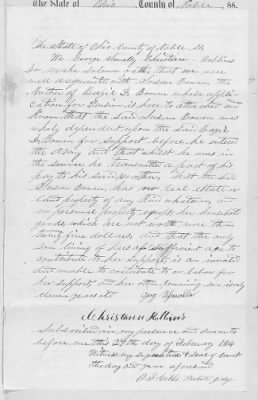 The State of Ohio County of Noble ss.
The State of Ohio County of Noble ss
We George Christian Robbins
do make solemn oath, that we were
well acquainted with Susan Bowen, the
Mother of D. Bowen whose appli-
cation for Pension is here to attached and
know that the said Susan Bowen was
wholy dependent upon the said
D. Bowen for support before he entered
the Army and that whilst he was in
the service he transmitted a part of his
pay to his said mother, that the said
Susan Bowen, has no real estate or
land property of any kind whatever, and
no personal property except her household
goods, which are not worth more than
twenty five dollars, and that the only
son living of hers of sufficient age to
contribute to her support, is an invalid
and unable to contribute to or labor for
her support and her other remaining son is only
eleven years old
Subscribed in my presence and sworn to
before me this 29th day of February 1864
Witness my signature & seal of court
the day and year aforesaid